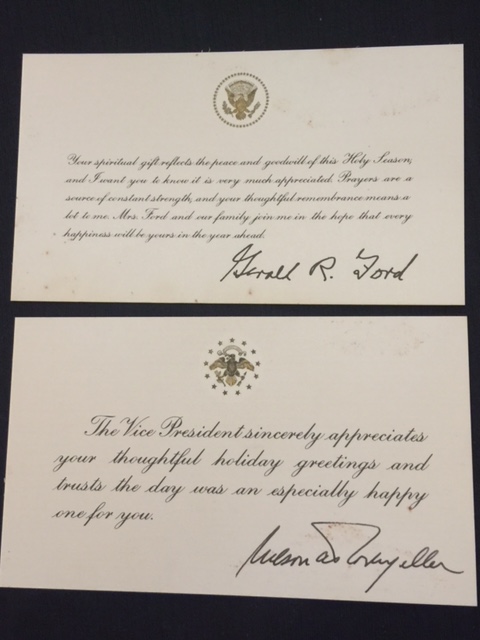 Your spiritual gift reflects the peace and goodwill of this Holy Season,
and I want you to know it is very much appreciated. Prayers are a
source of constant strength, and your thoughtful remembrance means a
lot to me. Mrs. Ford and our family join me in the hope that every
happiness will be yours in the year ahead.
Gerald R. Ford
The Vice President sincerely appreciates
your thoughtful holiday greetings and
trusts the day was an especially happy
one for you.